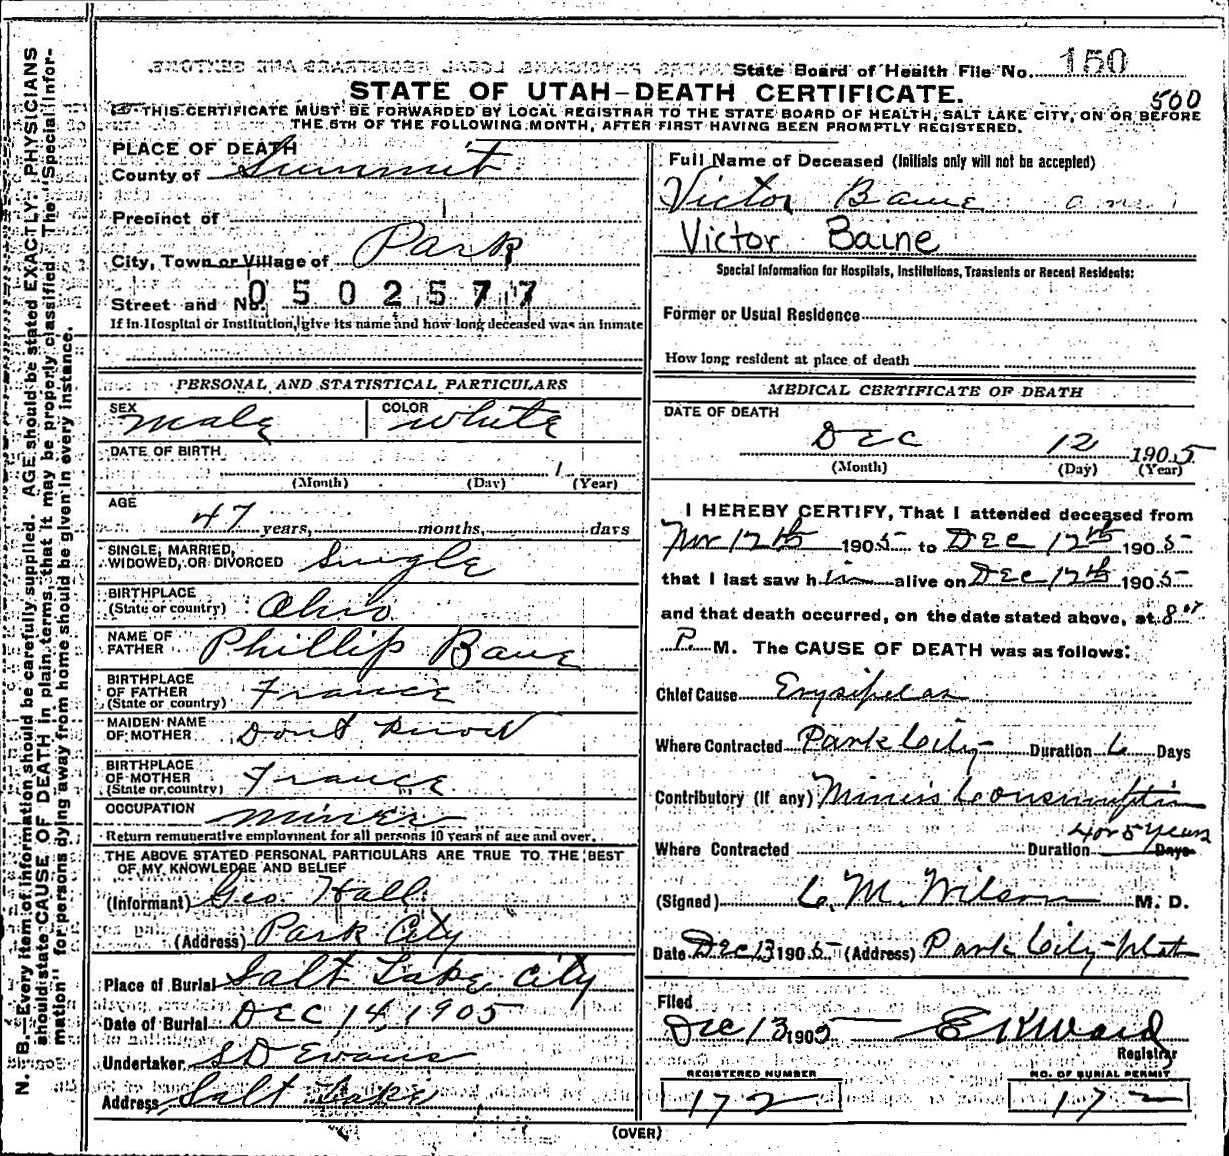 State Board of Health File No. 150
STATE OF UTAH-DEATH CERTIFICATE.
500
THIS CERTIFICATE MUST BE FORWARDED BY LOCAL REGISTRAR TO THE STATE BOARD OF HEALTH, SALT LAKE CITY, ON OR BEFORE
THE 5TH OF THE FOLLOWING MONTH, AFTER FIRST HAVING BEEN PROMPTLY REGISTERED.
N. B.—Every item of information should be carefully supplied. AGE should be stated EXACTLY. PHYSICIANS
should state CAUSE OF DEATH in plain terms, that it may be properly classified. The "Special Infor-
mation" for persons dying away from home should be given in every instance.
PLACE OF DEATH
County of Summit
Precinct of
City, Town or Village of Park
Street and No. 0502577
If in Hospital or Institution, give its name and how long deceased was an inmate
PERSONAL AND STATISTICAL PARTICULARS
SEX Male COLOR White
DATE OF BIRTH
(Month) (Day) 1 (Year)
AGE
47 years, months, days
SINGLE, MARRIED,
WIDOWED, OR DIVORCED Single
BIRTHPLACE
(State or country) Ohio
NAME OF
FATHER Phillip Bane
BIRTHPLACE
OF FATHER
(State or country) France
MAIDEN NAME
OF MOTHER Dont Know
BIRTHPLACE
OF MOTHER
(State or country) France
OCCUPATION Miner
Return remunerative employment for all persons 10 years of age and over.
THE ABOVE STATED PERSONAL PARTICULARS ARE TRUE TO THE BEST
OF MY KNOWLEDGE AND BELIEF
(Informant) Geo. Hall
(Address) Park City
Place of Burial Salt Lake City
Date of Burial Dec 14, 1905
Undertaker S D Evans
Address Salt Lake
Full Name of Deceased (Initials only will not be accepted)
Victor Baine
Victor Baine
Special Information for Hospitals, Institutions, Transients or Recent Residents:
Former or Usual Residence
How long resident at place of death
MEDICAL CERTIFICATE OF DEATH
DATE OF DEATH
Dec 12 1905
(Month) (Day) (Year)
I HEREBY CERTIFY, That I attended deceased from
Nov 12th 1905 to Dec 12th 1905
that I last saw him alive on Dec 12th 1905
and that death occurred, on the date stated above, at 8
P. M. The CAUSE OF DEATH was as follows:
Chief Cause Erysipelas
Where Contracted Park City Duration 6 Days
Contributory (If any) Miners Consumption
4 or 5 years
Where Contracted Duration Days
(Signed) C. M. Wilson M. D.
Date Dec 13 1905 (Address) Park City Utah
Filed
Dec 13 1905 E K Ward
Registrar
REGISTERED NUMBER NO. OF BURIAL PERMIT
172 172
(OVER)